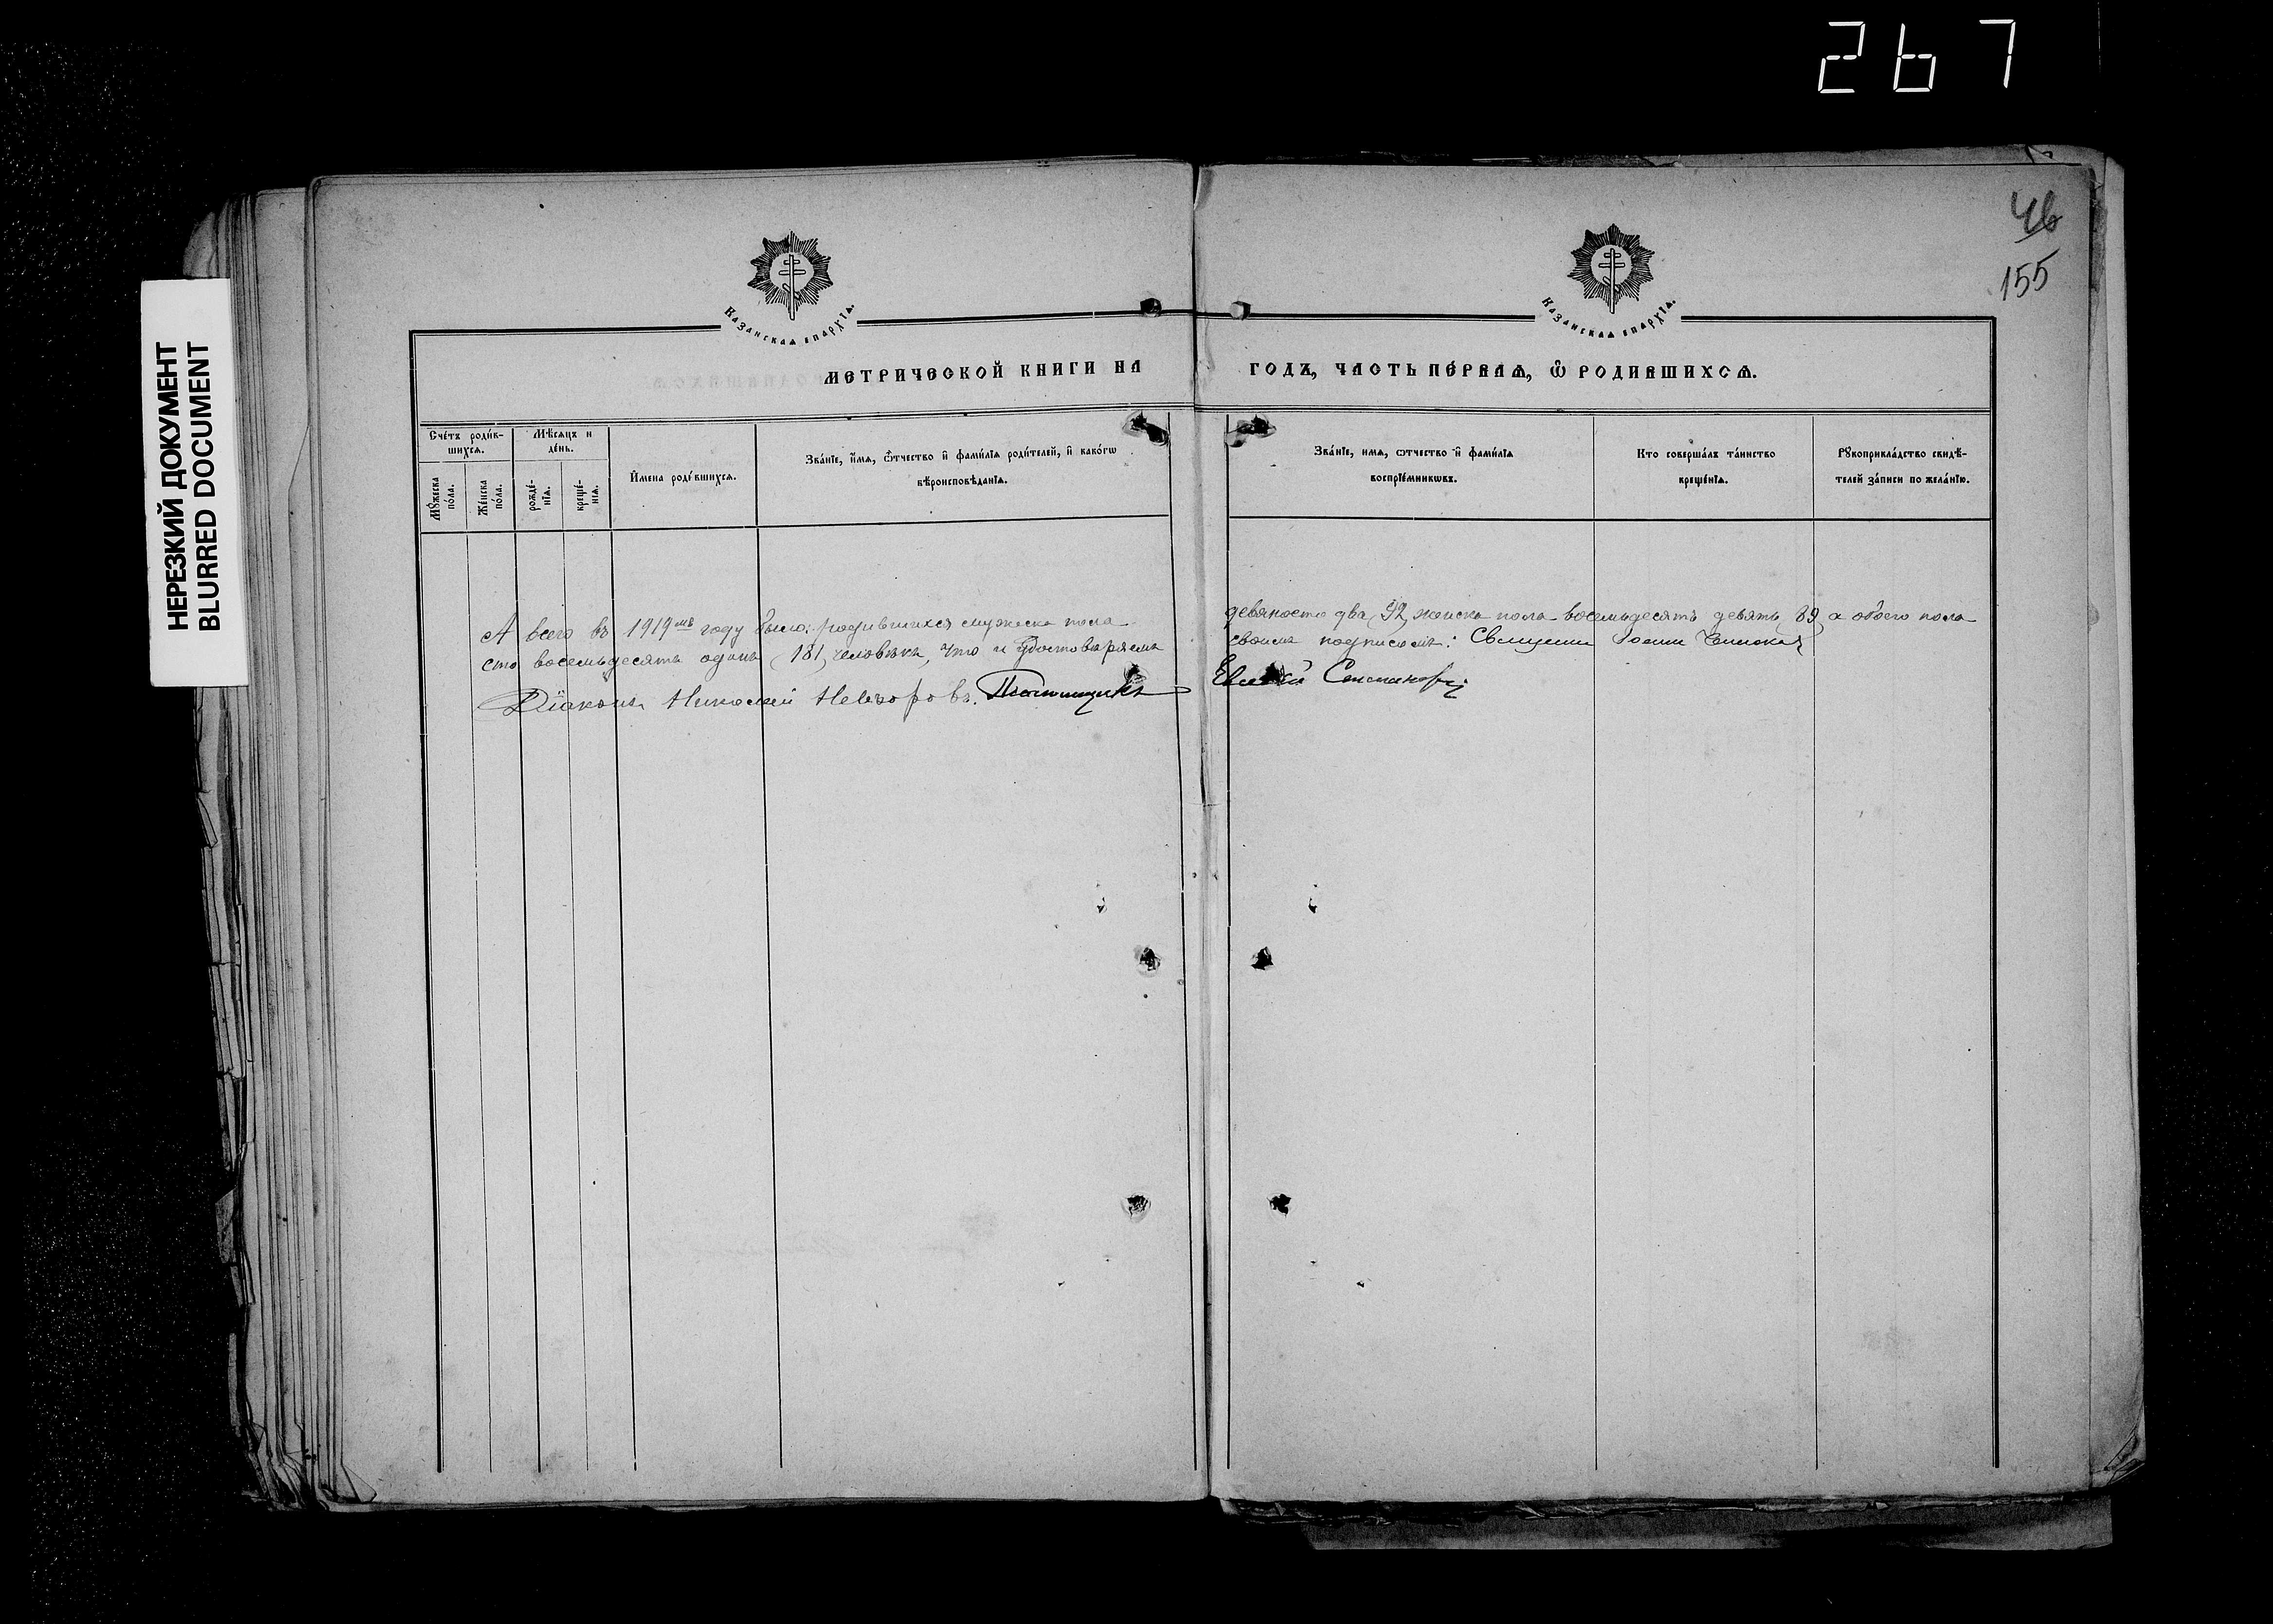 267
46
155
НЕРЕЗКИЙ ДОКУМЕНТ
BLURRED DOCUMENT
Казанская епархїѧ.
Казанская епархїѧ.
МЕТРИЧЕСКОЙ КНИГИ НА ГОДЪ, ЧАСТЬ ПЕ́РВАѦ, Ѽ РОДИВШИХСѦ.
Сче́тъ роди́в-
шихсѧ.
Мꙋ́жеска
по́ла.
Же́нска
по́ла.
Мѣ́сяцъ и
де́нь.
рожде́-
нїѧ.
креще́-
нїѧ.
И҆мена роди́вшихсѧ.
Зва́нїе, и҆́мѧ, ѻ҆́тчество и҆ фами́лїѧ роди́телей, и҆ како́гѡ
вѣроисповѣ́данїѧ.
Зва́нїе, имѧ, ѻтчество и҆ фами́лїѧ
воспрїе́мникѡвъ.
Кто соверша́лъ та́инство
креще́нїѧ.
Рꙋкоприкла́дство свидѣ́-
телей за́писи по жела́нїю.
А всего въ 1919мъ году было: родившихся мужеска пола девяносто два (92) женска пола восемьдесятъ девять (89) а обоего пола
сто восемьдесятъ одинъ (181) человѣка, что и удостовѣряемъ своимъ подписомъ: Священн Іоаннъ
Діаконъ Николай Невзоровъ. Псаломщикъ